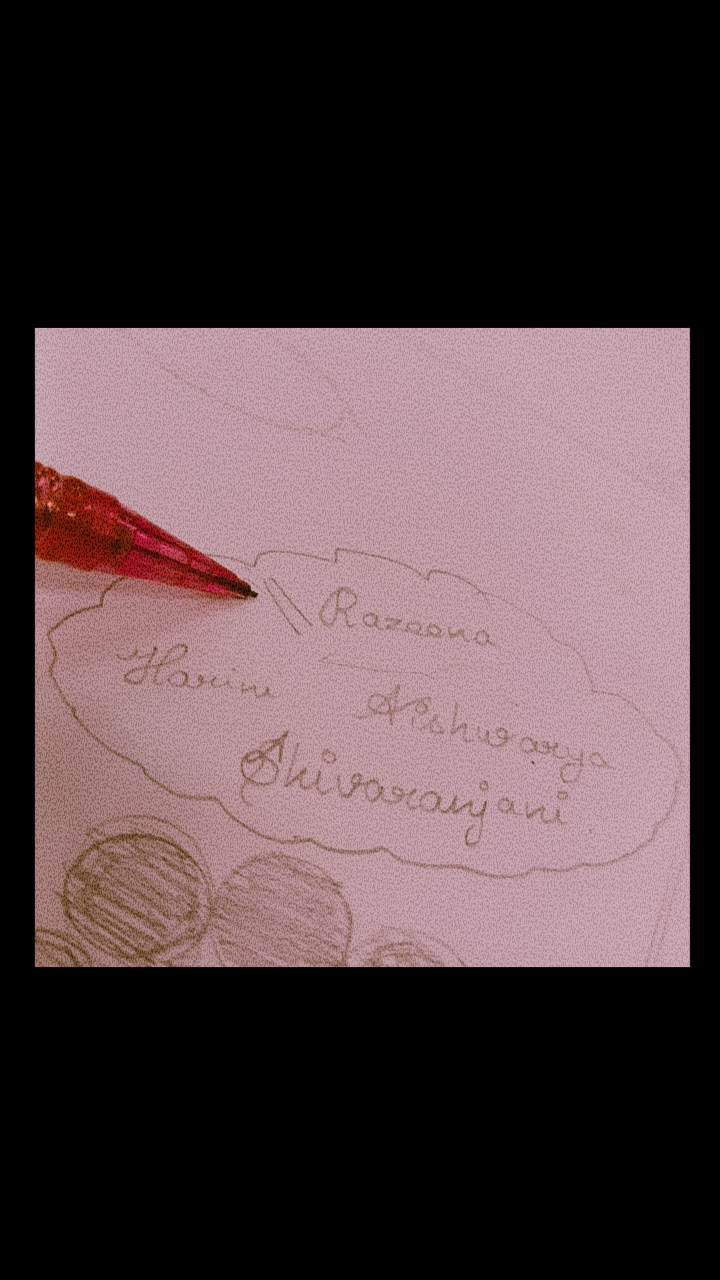 Razeena
Harini Aishwarya
Shivaranjani